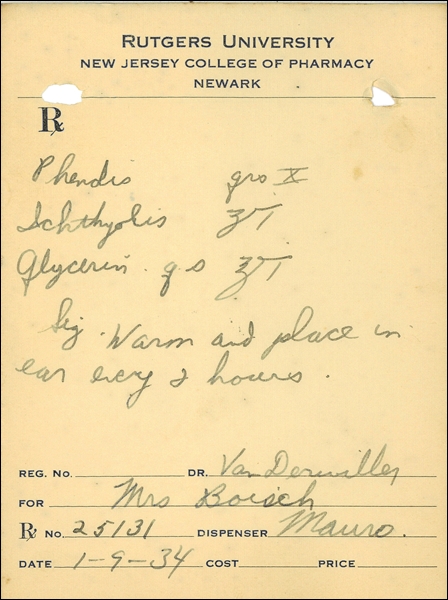 RUTGERS UNIVERSITY
NEW JERSEY COLLEGE OF PHARMACY
NEWARK
℞
Phenolis grs X
Ichthyolis ʒT
Glycerin q s ʒT
Sig. Warm and place in
ear every 2 hours.
REG. NO. DR. Van Derwilley
FOR Mrs Boisch
℞ NO. 25131 DISPENSER Mauro.
DATE 1-9-34 COST PRICE